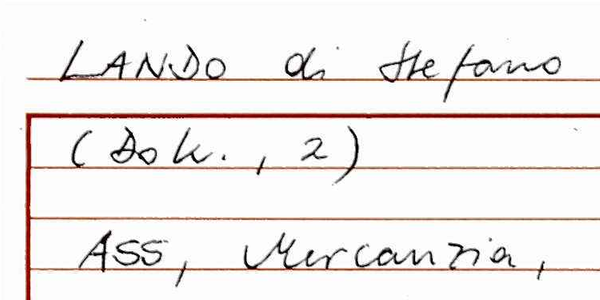 LANDO di Stefano
(Dok., 2)
ASS, Mercanzia,